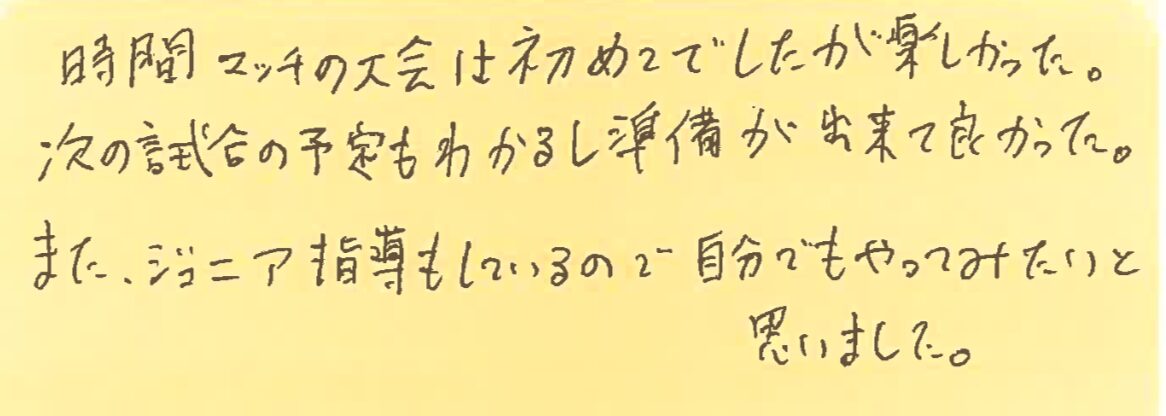 時間マッチの大会は初めてでしたが楽しかった。
次の試合の予定もわかるし準備が出来て良かった。
また、ジュニア指導もしているので自分でもやってみたいと
思いました。